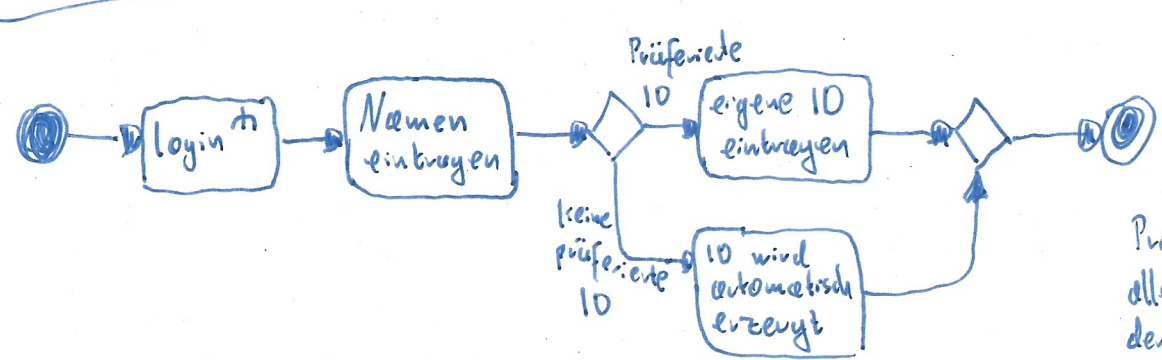 login
Namen
eintragen
Präferierte
ID
eigene ID
eintragen
keine
präferierte
ID
ID wird
automatisch
erzeugt